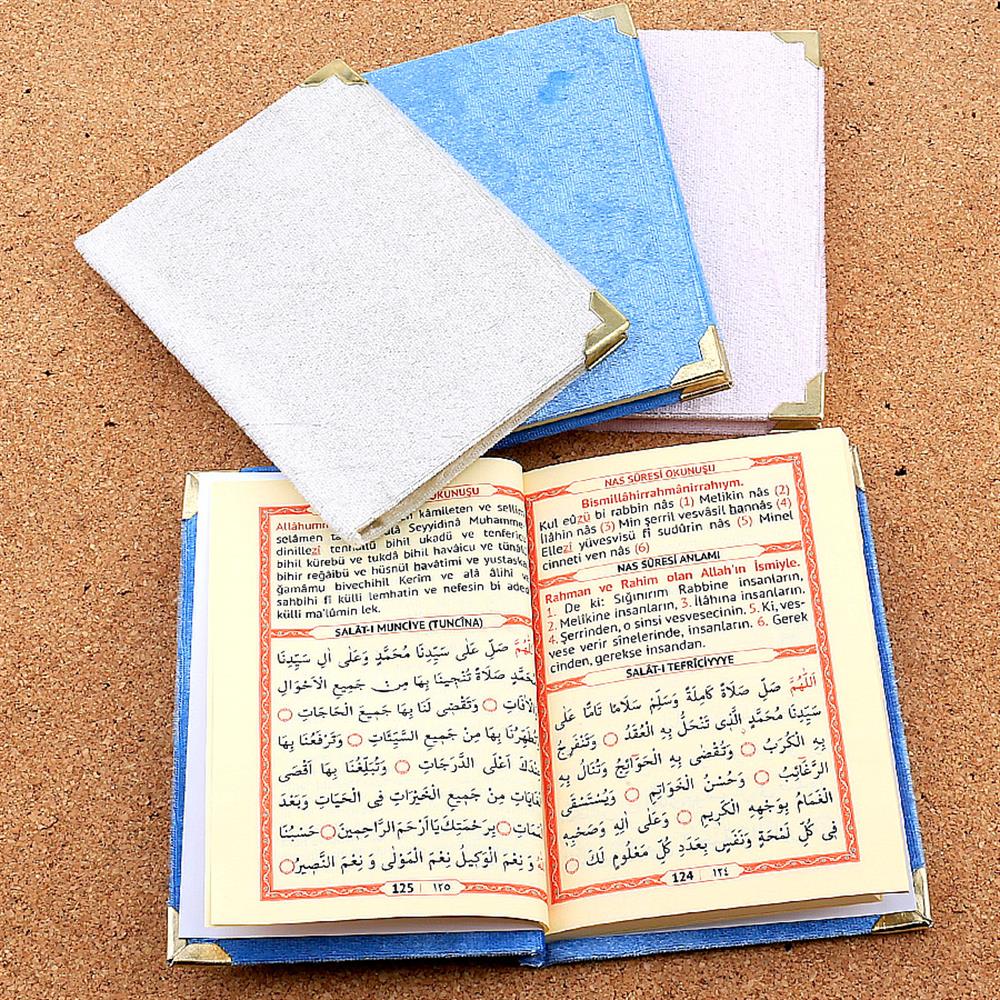 NAS SÛRESİ OKUNUŞU
Bismillâhirrahmânirrahıym.
Kul eûzü bi rabbin nâs (1) Melikin nâs (2)
İlâhin nâs (3) Min şerril vesvâsil hannâs (4)
Ellezî yüvesvisü fî sudûrin nâs (5) Minel
cinneti ven nâs (6)
NAS SÛRESİ ANLAMI
Rahman ve Rahim olan Allah'ın İsmiyle.
1. De ki: Sığınırım Rabbine insanların,
2. Melikine insanların, 3. İlâhına insanların.
4. Şerrinden, o sinsi vesvesecinin. 5. Ki, ves-
vese verir sînelerinde, insanların. 6. Gerek
cinden, gerekse insandan.
SALÂT-I TEFRİCİYYYE
اَللّٰهُمَّ صَلِّ صَلَاةً كَامِلَةً وَسَلِّمْ سَلَامًا تَامًّا عَلٰى
سَيِّدِنَا مُحَمَّدٍ الَّذِى تَنْحَلُّ بِهِ الْعُقَدُ وَتَنْفَرِجُ
بِهِ الْكُرَبُ وَتُقْضٰى بِهِ الْحَوَائِجُ وَتُنَالُ بِهِ
الرَّغَائِبُ وَحُسْنُ الْخَوَاتِمِ وَيُسْتَسْقَى
الْغَمَامُ بِوَجْهِهِ الْكَرِيمِ وَعَلٰى اٰلِهِ وَصَحْبِهِ
فِى كُلِّ لَمْحَةٍ وَنَفَسٍ بِعَدَدِ كُلِّ مَعْلُومٍ لَكَ
124 | ١٢٤
OKUNUŞU
kâmileten ve sellim
selâmen Seyyidinâ Muhamme
dinillezî tenhallü bihil ukadü ve tenfericü
bihil kürebü ve tukdâ bihil havâicu ve tünâlü
bihir reğâibü ve hüsnül havâtimi ve yustaska
ğamâmu bivechihil Kerîm ve alâ âlihi ve
sahbihi fî külli lemhatin ve nefesin bi aded
külli ma'lûmin lek.
SALÂT-I MUNCİYE (TUNCÎNA)
صَلِّ عَلٰى سَيِّدِنَا مُحَمَّدٍ وَعَلٰى اٰلِ سَيِّدِنَا
صَلَاةً تُنْجِينَا بِهَا مِنْ جَمِيعِ الْاَحْوَالِ
وَتَقْضٖى لَنَا بِهَا جَمِيعَ الْحَاجَاتِ
بِهَا مِنْ جَمِيعِ السَّيِّئَاتِ وَتَرْفَعُنَا بِهَا
اَعْلَى الدَّرَجَاتِ وَتُبَلِّغُنَا بِهَا اَقْصَى
مِنْ جَمِيعِ الْخَيْرَاتِ فِى الْحَيَاتِ وَبَعْدَ
بِرَحْمَتِكَ يَا اَرْحَمَ الرَّاحِمِينَ حَسْبُنَا
وَ نِعْمَ الْوَكِيلُ نِعْمَ الْمَوْلٰى وَ نِعْمَ النَّصِيرُ
125 | ١٢٥